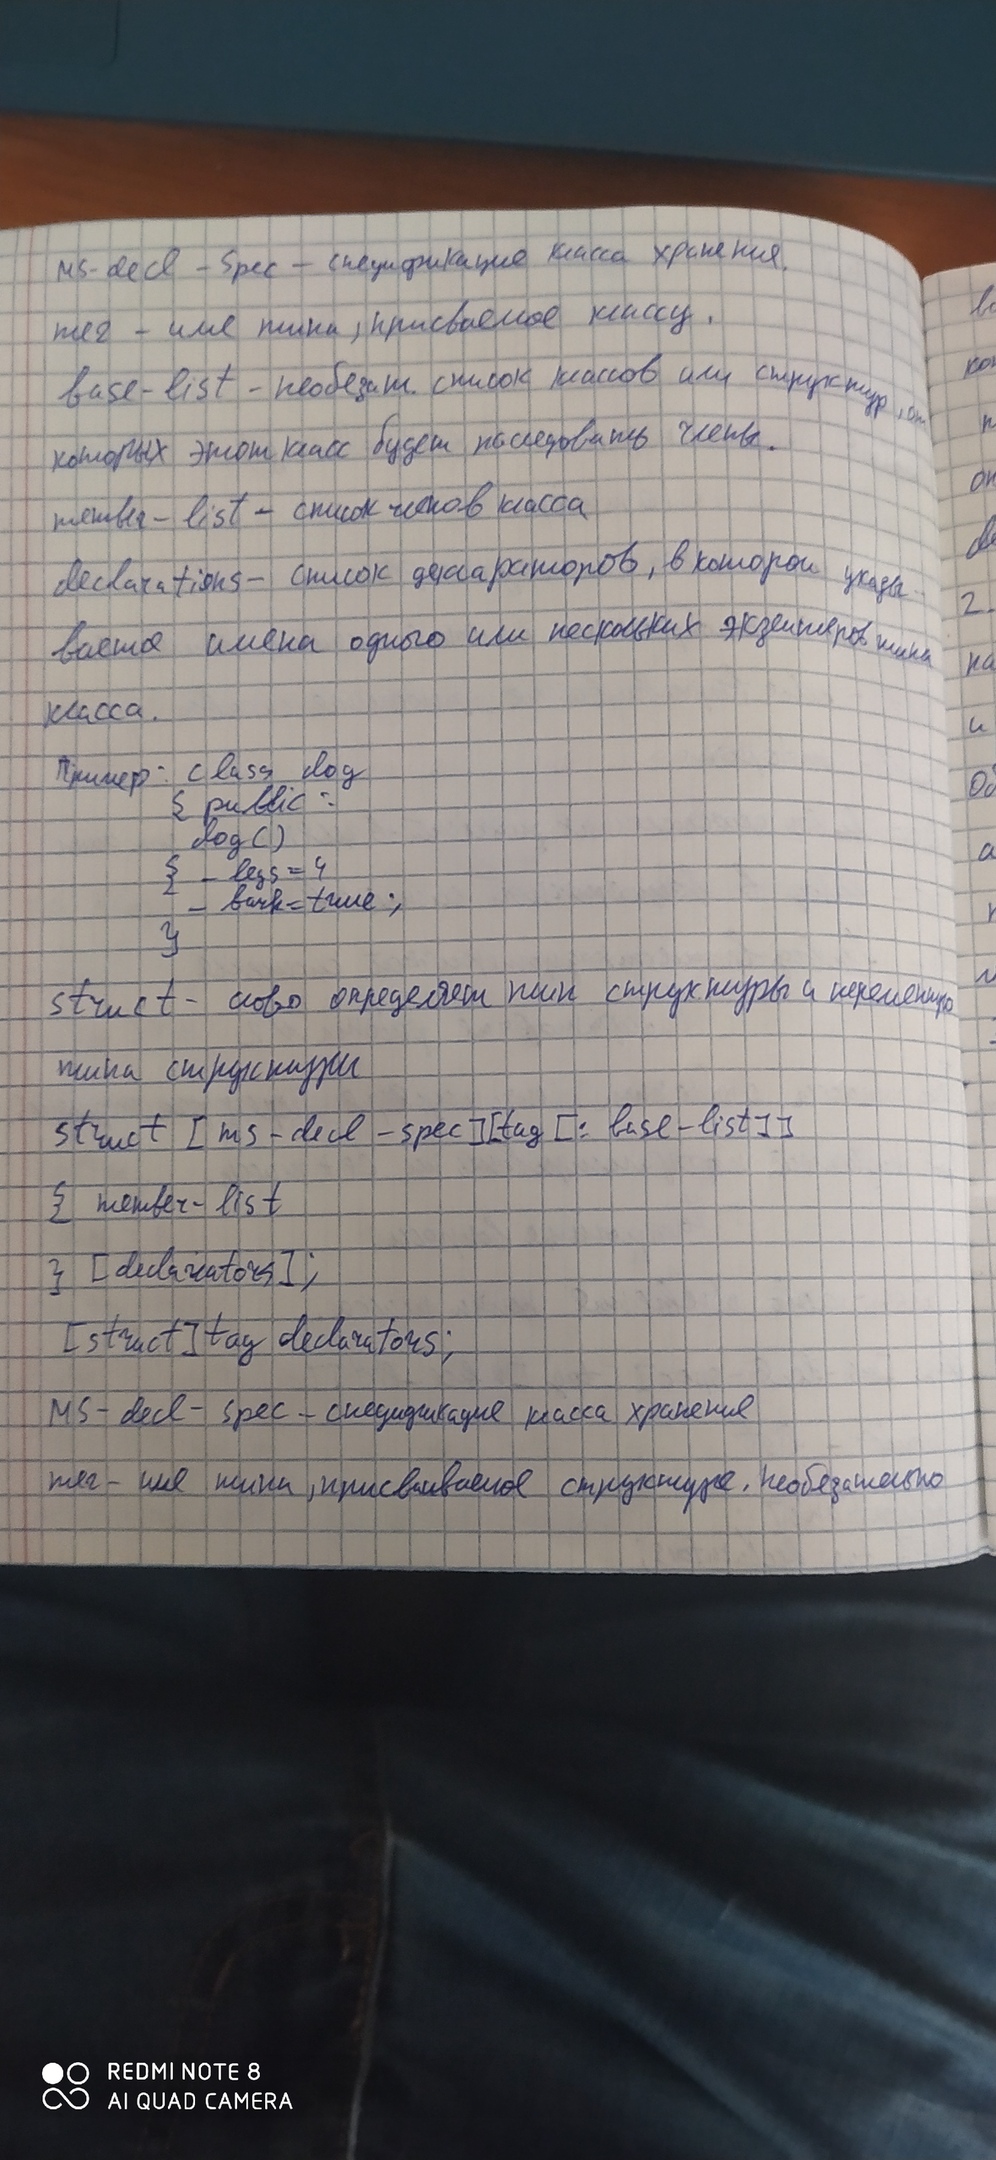 ms-decl-spec - спецификация класса хранения.
тег - имя типа, присваемое классу.
base-list - необязат. список классов или структур, от
которых этот класс будет наследовать члены.
member-list - список членов класса
declarations - список деклараторов, в которой указы-
ваются имена одного или нескольких экземпляров типа
класса.
Пример: class dog
{ public:
dog()
{ _legs=4
_bark=true;
}
struct - слово определяет тип структуры и переменную
типа структуры
struct [ms-decl-spec][tag[: base-list]]
{ member-list
} [declarators];
[struct] tag declarators;
MS-decl-spec - спецификация класса хранения
тег - имя типа, присваиваемое структуре. необязательно
2.
и
REDMI NOTE 8
AI QUAD CAMERA